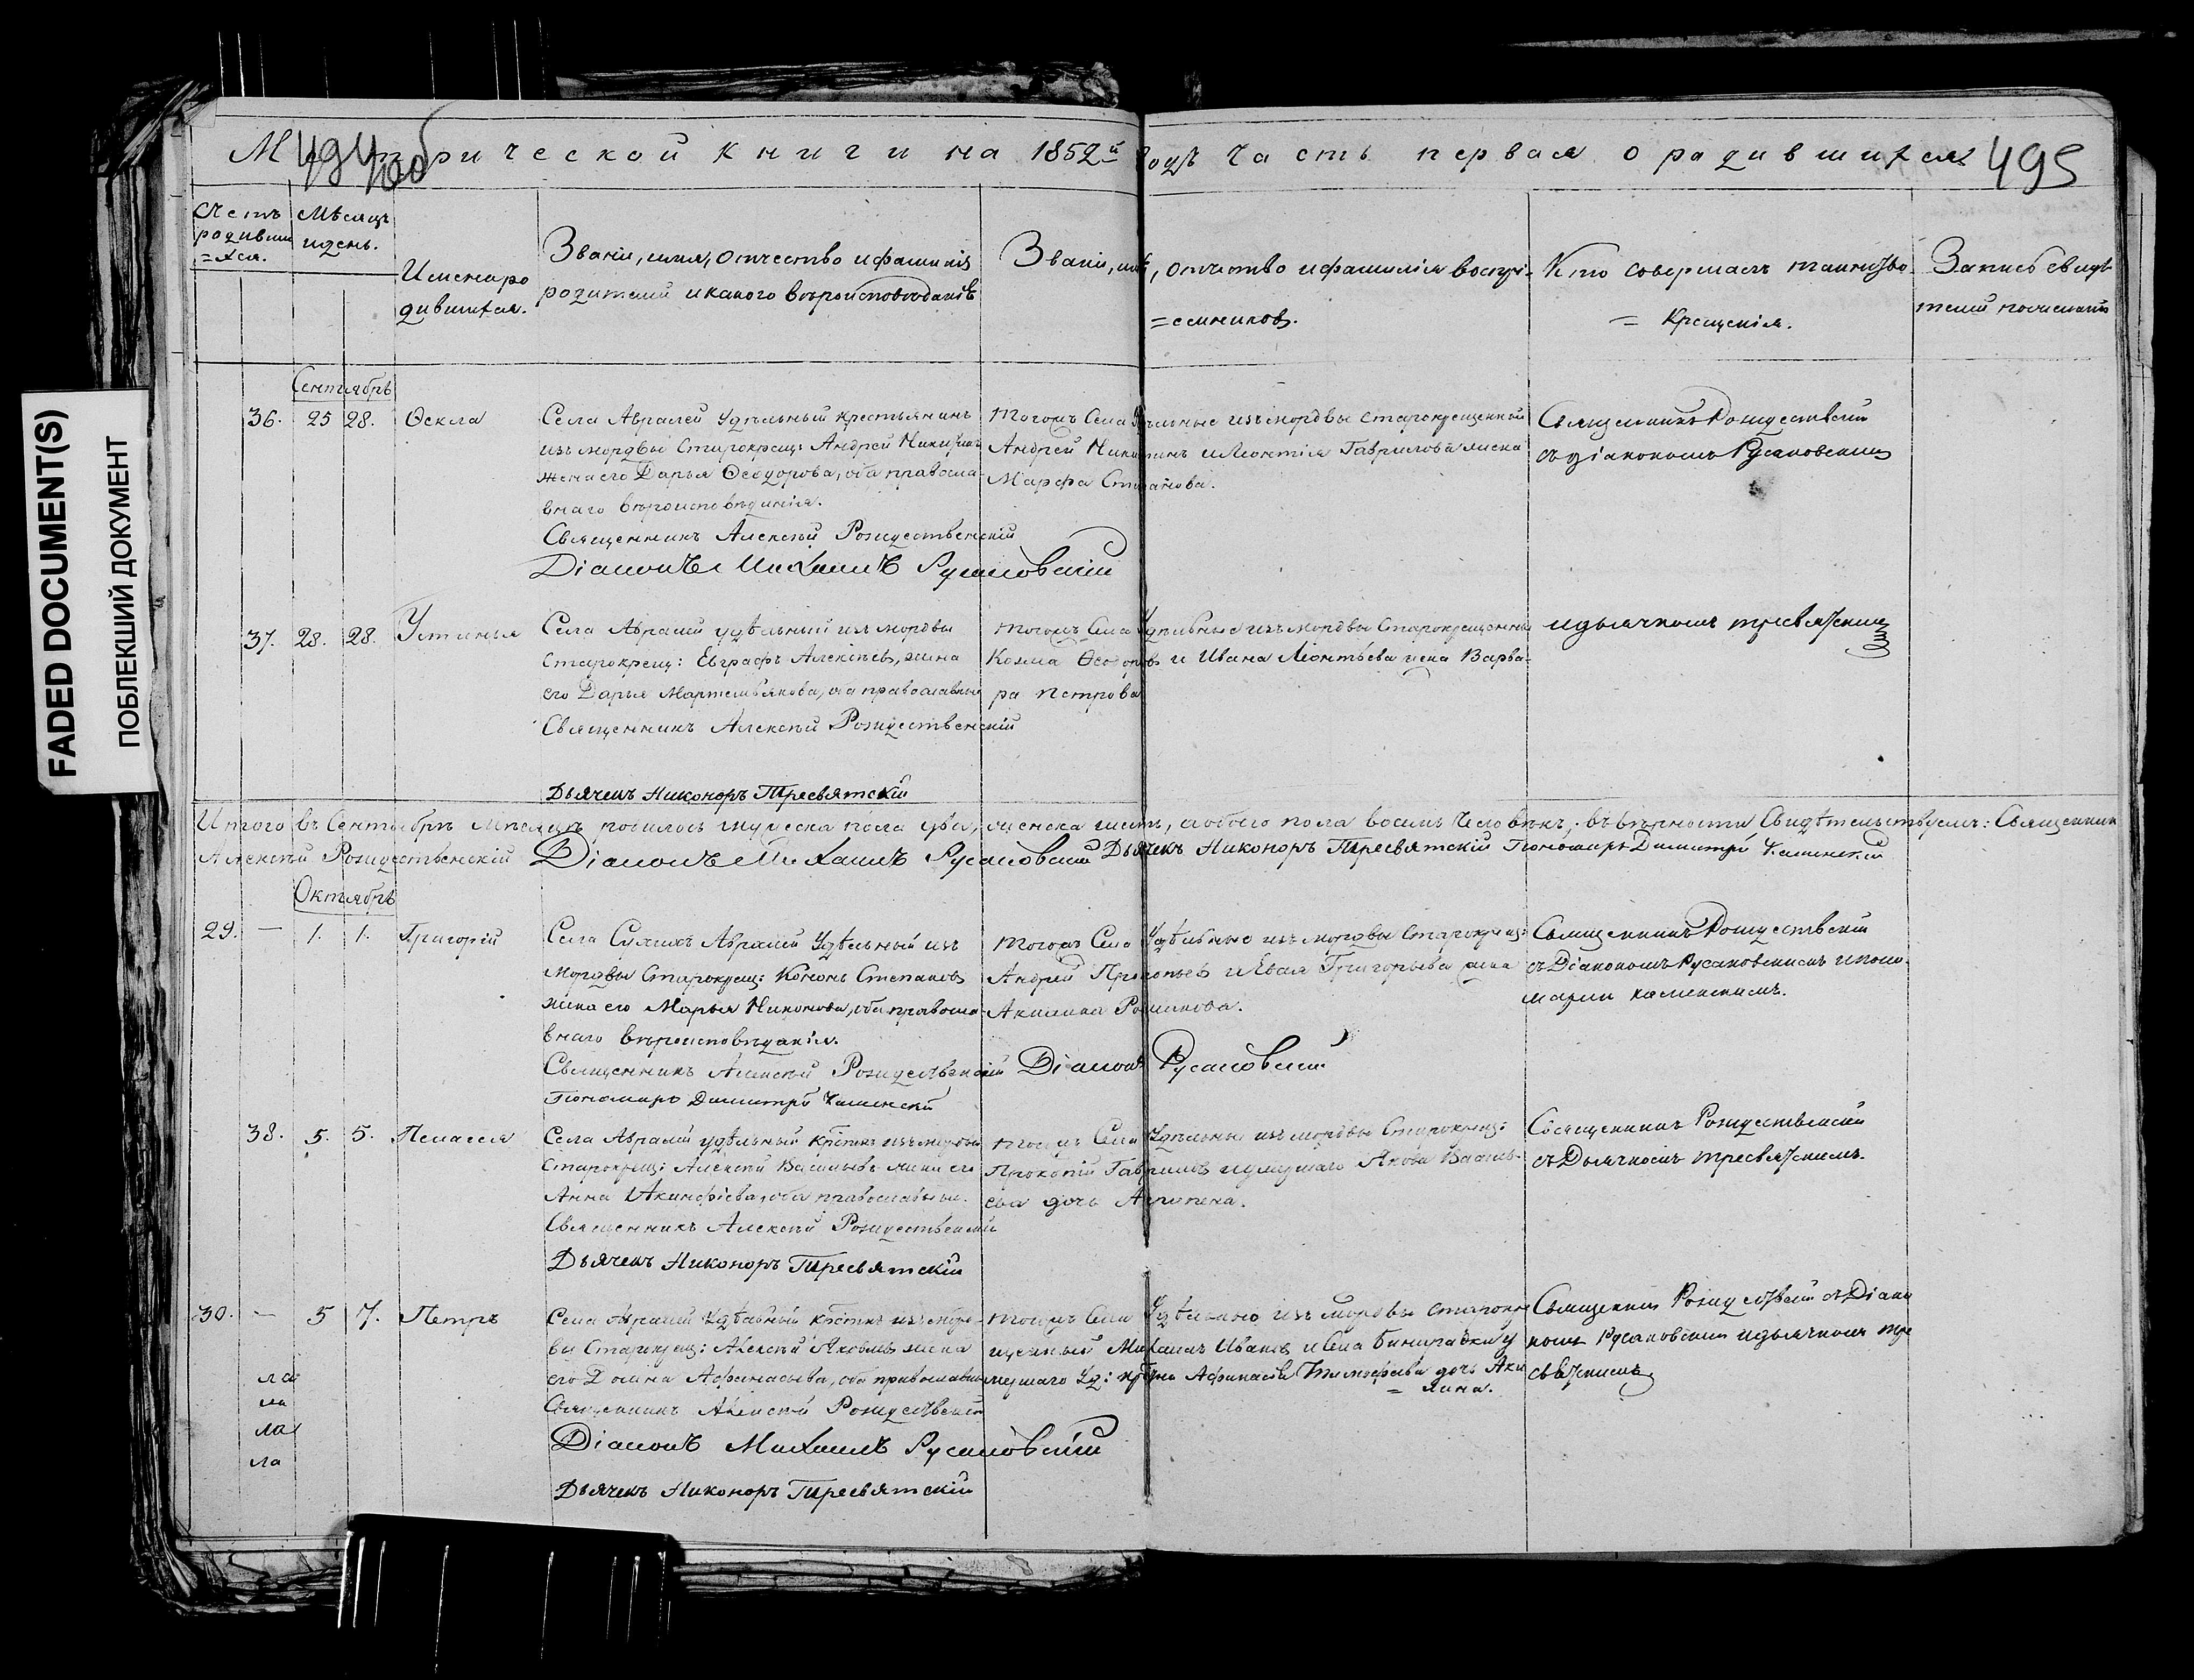 FADED DOCUMENT(S)
ПОБЛЕКШИЙ ДОКУМЕНТ
Метрической книги на 1852й годъ часть первая о родившихся
494 об
495
Счетъ родивши=хся.
Мѣсяцъ и день.
Имена родившихся.
Званіе, имя, отчество и фамилія
родителей и какого вѣроисповѣданія
Званіе, имя, отчество и фамилія воспрі-
=емниковъ.
Кто совершалъ таинство
= Крещенія.
Запись свидѣ
телей по желанію
Сентябрь
36. 25 28. Ѳекла
Села Авралей удѣльный крестьянинъ
изъ мордвы старокрещ: Андрей Никитинъ
жена его Дарья Ѳеодорова, оба правосла-
внаго вѣроисповѣданія.
Священникъ Алексѣй Рождественскій
Діаконъ Михаилъ Русановскій
Тогожъ Села Удѣльные изъ мордвы старокрещенной
Андрей Никитинъ и Леонтія Гаврилова жена
Марфа Степанова.
Священникъ Рождествскій
съ діакономъ Русановскимъ
37. 28. 28. Устинья
Села Авралей удѣльный изъ мордвы
старокрещ: Евграфъ Алексѣевъ, жена
его Дарья Мартемьянова, оба православные
Священникъ Алексѣй Рождественскій
Дьячекъ Никоноръ Тресвятскій
Тогожъ Села Удѣльные изъ мордвы старокрещенной
Козма Ѳеодоровъ и Ивана Леонтьева жена Варва-
ра Петрова
и дьячкомъ Тресвятскимъ
Итого въ Сентябрѣ мѣсяцѣ родилось мужеска пола два, женска шесть, а обоего пола восемь человѣкъ; въ вѣрности свидѣтельствуемъ: Священникъ
Алексѣй Рождественскій Діаконъ Михаилъ Русановскій Дьячекъ Никоноръ Тресвятскій Пономарь Димитрій Каменскій
Октябрь
29. — 1. 1. Григорій
Села Авралей Удѣльный изъ
мордвы старокрещ: Кононъ Степановъ
жена его Марья Никонова, оба правосла-
внаго вѣроисповѣданія.
Священникъ Алексѣй Рождественскій Діаконъ Русановскій
Пономарь Димитрій Каменскій
Тогожъ Села Удѣльные изъ мордвы старокрещ:
Андрей Прокопьев и Григорьева жена
Акилина Романова.
Священникъ Рождествскій
съ Діакономъ Русановскимъ и поно-
маремъ Каменскимъ.
38. 5. 5. Пелагея
Села Авралей удѣльный изъ мордвы
старокрещ: Алексѣй Васильевъ жена его
Анна Акинфіева, оба православные.
Священникъ Алексѣй Рождественскій
Дьячекъ Никоноръ Тресвятскій
Тогожъ Села Удѣльные изъ мордвы старокрещ:
Прокопій Гавриловъ и умершаго Якова Василь-
ева дочь Агрипина.
Священникъ Рождественскій
съ Дьячкомъ Тресвятскимъ.
30. — 5 7. Петръ
Села Авралей Удѣльный изъ морд-
вы старокрещ: Алексѣй Яковлевъ жена
его Домна Афанасьева, оба православные
Священникъ Алексѣй Рождественскій
Діаконъ Михаилъ Русановскій
Дьячекъ Никоноръ Тресвятскій
Тогожъ Села Удѣльною изъ мордвы старокре
щенный Михаилъ Ивановъ и Села у
мершаго Уд: Афанасія Тимофеева дочь Аки
= лина.
Священникъ Рождествскій съ Діако
номъ Русановскимъ и дьячкомъ Тре
святскимъ
ла
ла
ла
ла